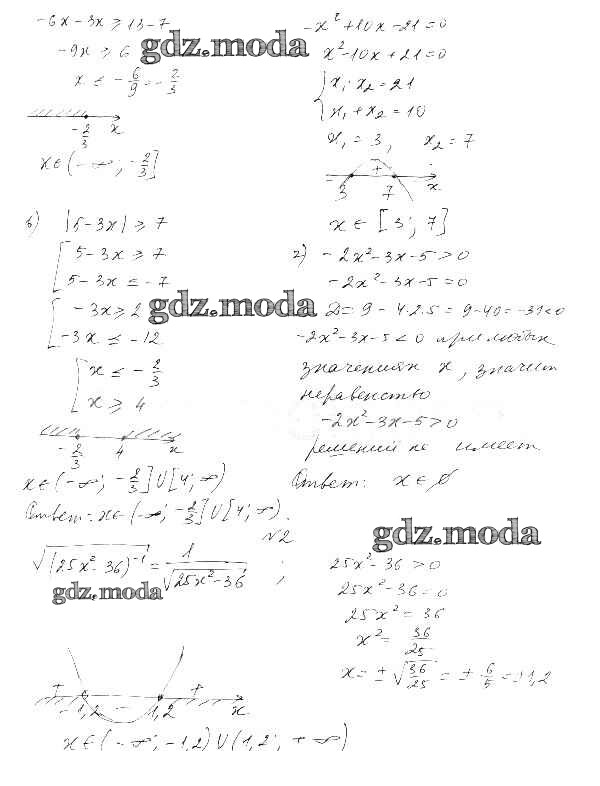 -6x - 3x ≥ 13 - 7
-9x ≥ 6
x ≤ -6/9 = -2/3
-2/3 x
x ∈ (-∞; -2/3]
-x² + 10x - 21 = 0
x² - 10x + 21 = 0
x₁ · x₂ = 21
x₁ + x₂ = 10
x₁ = 3, x₂ = 7
- + -
3 7 x
x ∈ [3; 7]
gdz.moda
в) |5 - 3x| ≥ 7
5 - 3x ≥ 7
5 - 3x ≤ -7
-3x ≥ 2
-3x ≤ -12
x ≤ -2/3
x ≥ 4
-2/3 4 x
x ∈ (-∞; -2/3] ∪ [4; ∞)
Ответ: x ∈ (-∞; -2/3] ∪ [4; ∞).
г) -2x² - 3x - 5 > 0
-2x² - 3x - 5 = 0
D = 9 - 4·2·5 = 9 - 40 = -31 < 0
-2x² - 3x - 5 < 0 при любых
значениях x, значит
неравенство
-2x² - 3x - 5 > 0
решений не имеет
Ответ: x ∈ ∅
gdz.moda
№2
√(25x² - 36)⁻¹ = 1/√(25x² - 36) ;
gdz.moda
gdz.moda
25x² - 36 > 0
25x² - 36 = 0
25x² = 36
x² = 36/25
x = ±√(36/25) = ± 6/5 = ±1,2
+ - +
-1,2 1,2 x
x ∈ (-∞; -1,2) ∪ (1,2; +∞)